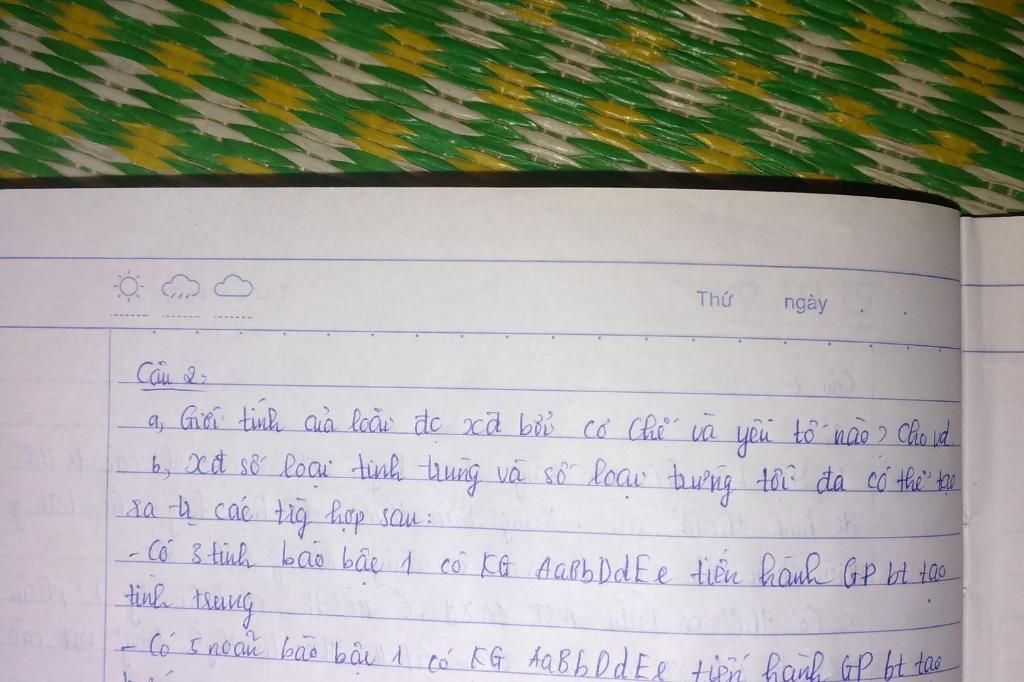 Thứ ngày
Câu 2:
a, Giới tính của loài đc xđ bởi cơ chế và yếu tố nào? Cho vd.
b, xđ số loại tinh trùng và số loại trứng tối đa có thể tạo
ra từ các trg hợp sau:
- Có 3 tinh bào bậc 1 có KG AaBbDdEe tiến hành GP bt tạo
tinh trùng
- Có 5 noãn bào bậc 1 có KG AaBbDdEe tiến hành GP bt tạo